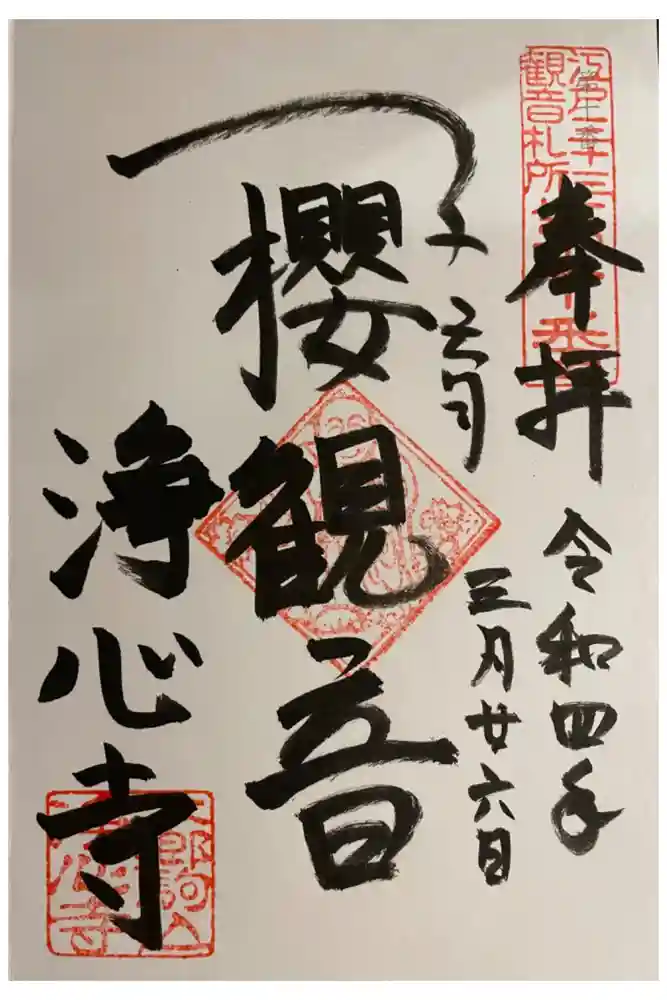 奉拝
令和四年
三月廿六日
櫻観音
浄心寺
江戸三十三
観音札所
第十番